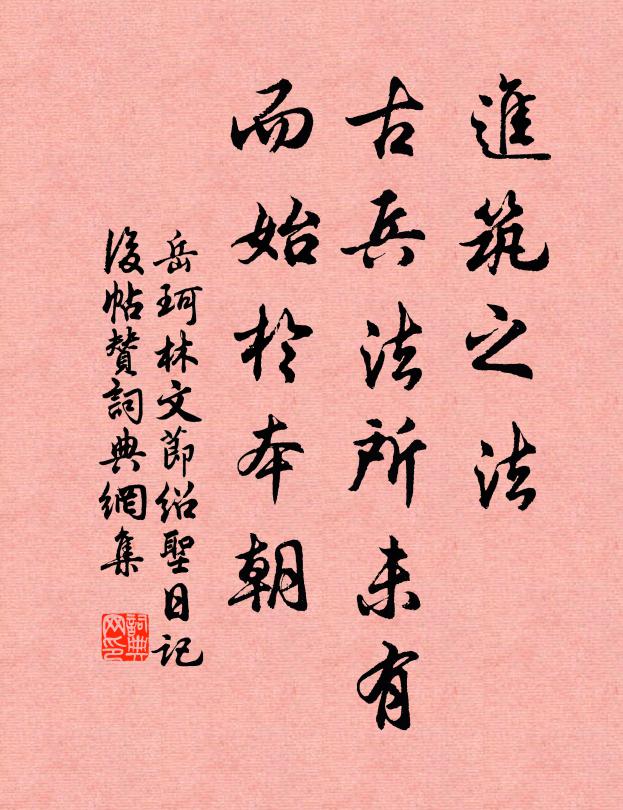 進筑之法
古兵法所未有
而始於本朝
岳珂林文節紹聖日記
後帖贊詞典網集
詞典
网印